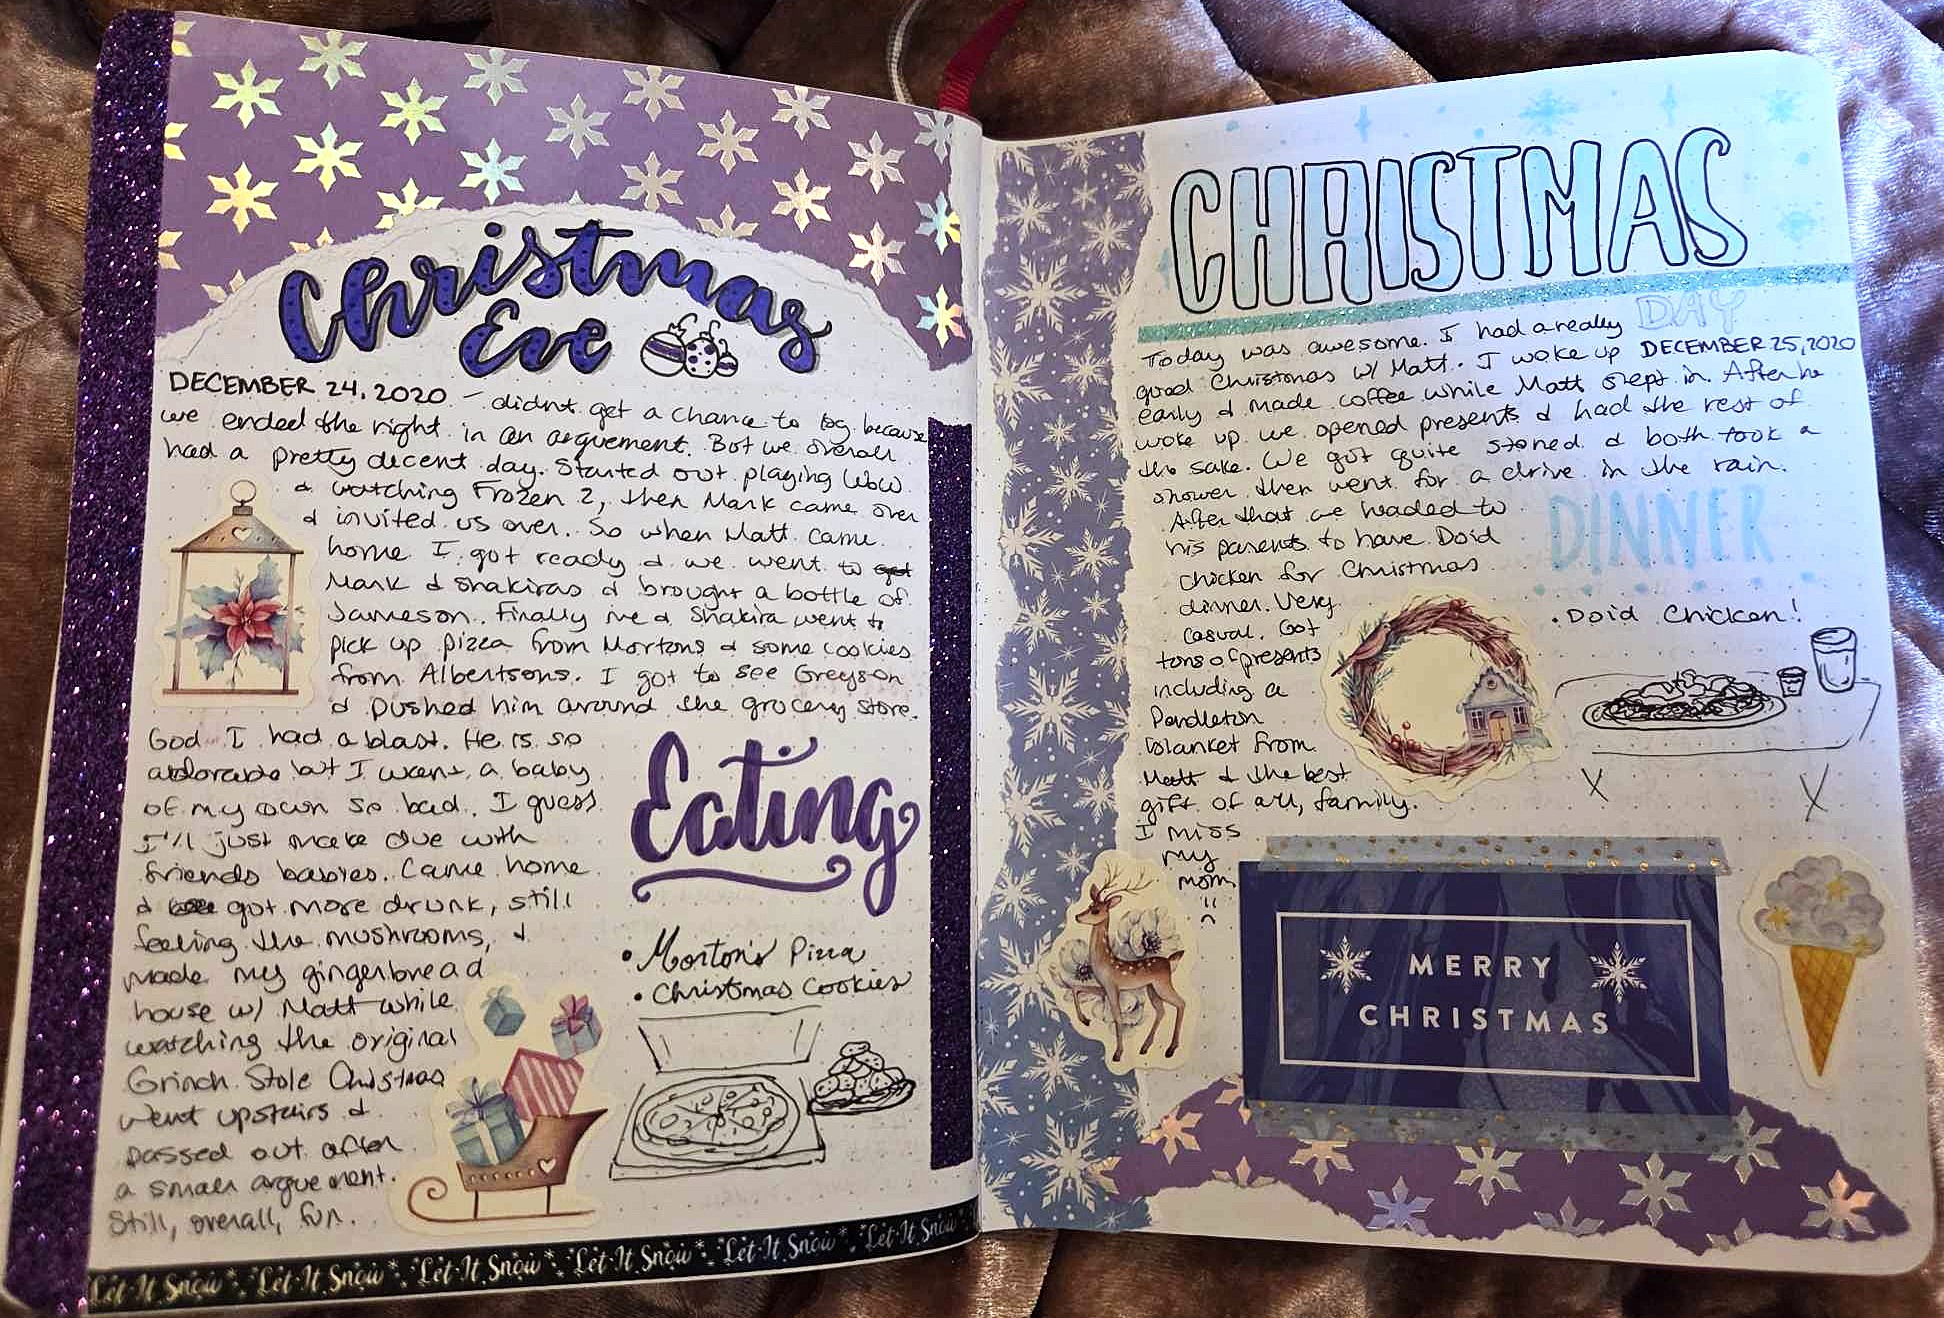 Christmas
Eve
DECEMBER 24, 2020 - didnt get a chance to log because
we ended the right in an arguement. But we overall
had a pretty decent day. Started out playing WoW
& watching Frozen 2, then Mark came over
& invited us over. So when Matt came
home I got ready & we went to
Mark & Shakiras & brought a bottle of
Jameson. Finally me & Shakira went to
pick up pizza from Mortons & some cookies
from Albertsons. I got to see Greyson
& pushed him around the grocery store.
God I had a blast. He is so
adorable but I want a baby
of my own so bad. I guess
I'll just make due with
friends babies. Came home
& got more drunk, still
feeling the mushrooms, &
made my gingerbread
house w/ Matt while
watching the original
Grinch Stole Christmas
went upstairs &
passed out after
a small arguement.
Still, overall, fun.
Eating
• Morton's Pizza
• Christmas Cookies
Let It Snow Let It Snow Let It Snow Let It Snow Let It Snow Let It Snow
CHRISTMAS
DAY
Today was awesome. I had a really
good Christmas w/ Matt. I woke up DECEMBER 25, 2020
early & made coffee while Matt slept in. After he
woke up we opened presents & had the rest of
the sake. We got quite stoned & both took a
shower then went for a drive in the rain.
After that we headed to
his parents to have Doid
chicken for Christmas
dinner. Very
casual. Got
tons of presents
including a
Pendleton
blanket from
Matt & the best
gift of all, family.
I miss
my
mom
DINNER
• Doid Chicken!
MERRY
CHRISTMAS